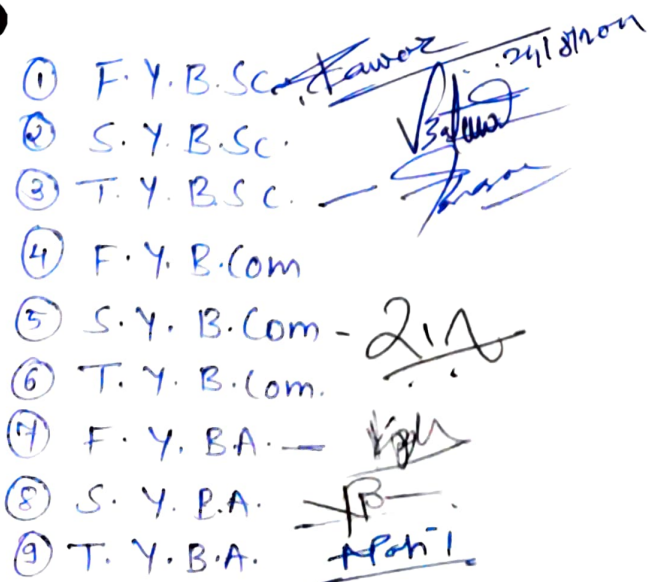 ① F. Y. B. Sc. 24/8/2021
② S. Y. B. Sc.
③ T. Y. B. S C. —
④ F. Y. B. Com
⑤ S. Y. B. Com -
⑥ T. Y. B. Com.
⑦ F. Y. BA. —
⑧ S. Y. B.A.
⑨ T. Y. B.A. Patil